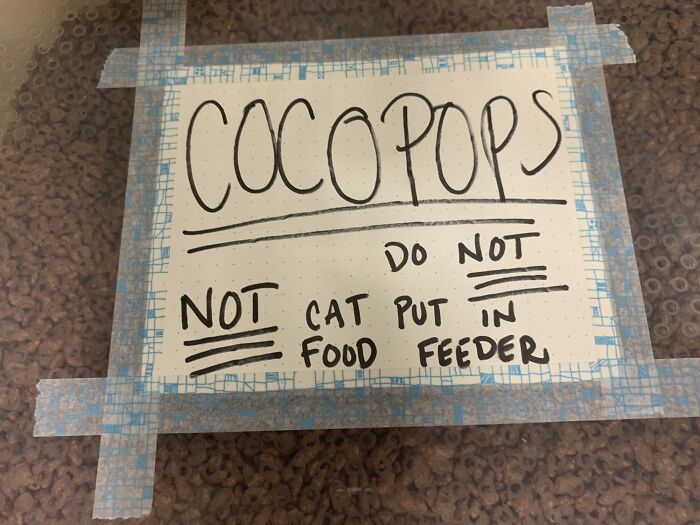 COCOPOPS
DO NOT
NOT CAT PUT IN
FOOD FEEDER